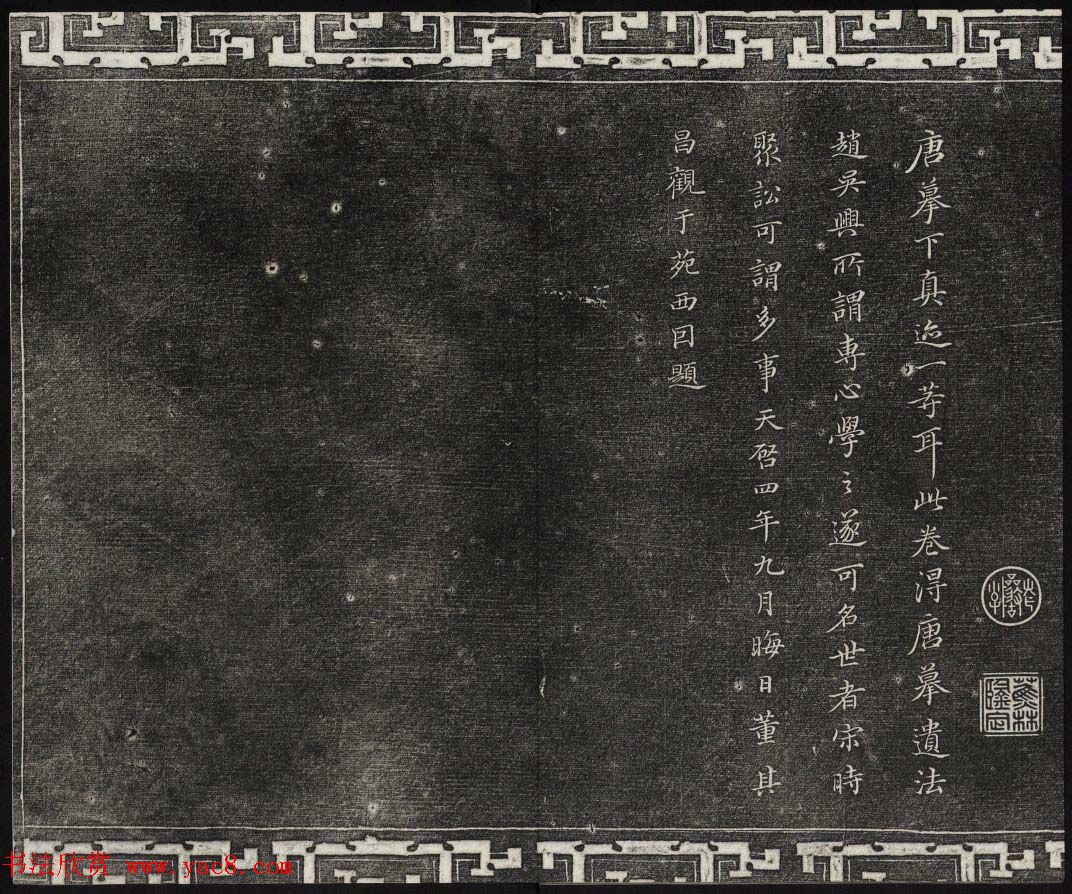 唐摹下真迹一等耳此卷得唐摹遺法
趙吳興所謂專心學之遂可名世者宋時
聚訟可謂多事天啓四年九月晦日董其
昌觀于苑西回題
蕉林
书法欣赏 www.yac8.com